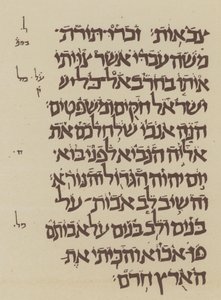 צבאות׃ זכרו תורת
משה עבדי אשר צויתי
אותו בחרב על כל
ישראל חקים ומשפטים׃
הנה אנכי שלח לכם את
אליה הנביא לפני בוא
יום יהוה הגדול והנורא׃
והשיב לב אבות על
בנים ולב בנים על אבותם
פן אבוא והכיתי את
הארץ חרם׃